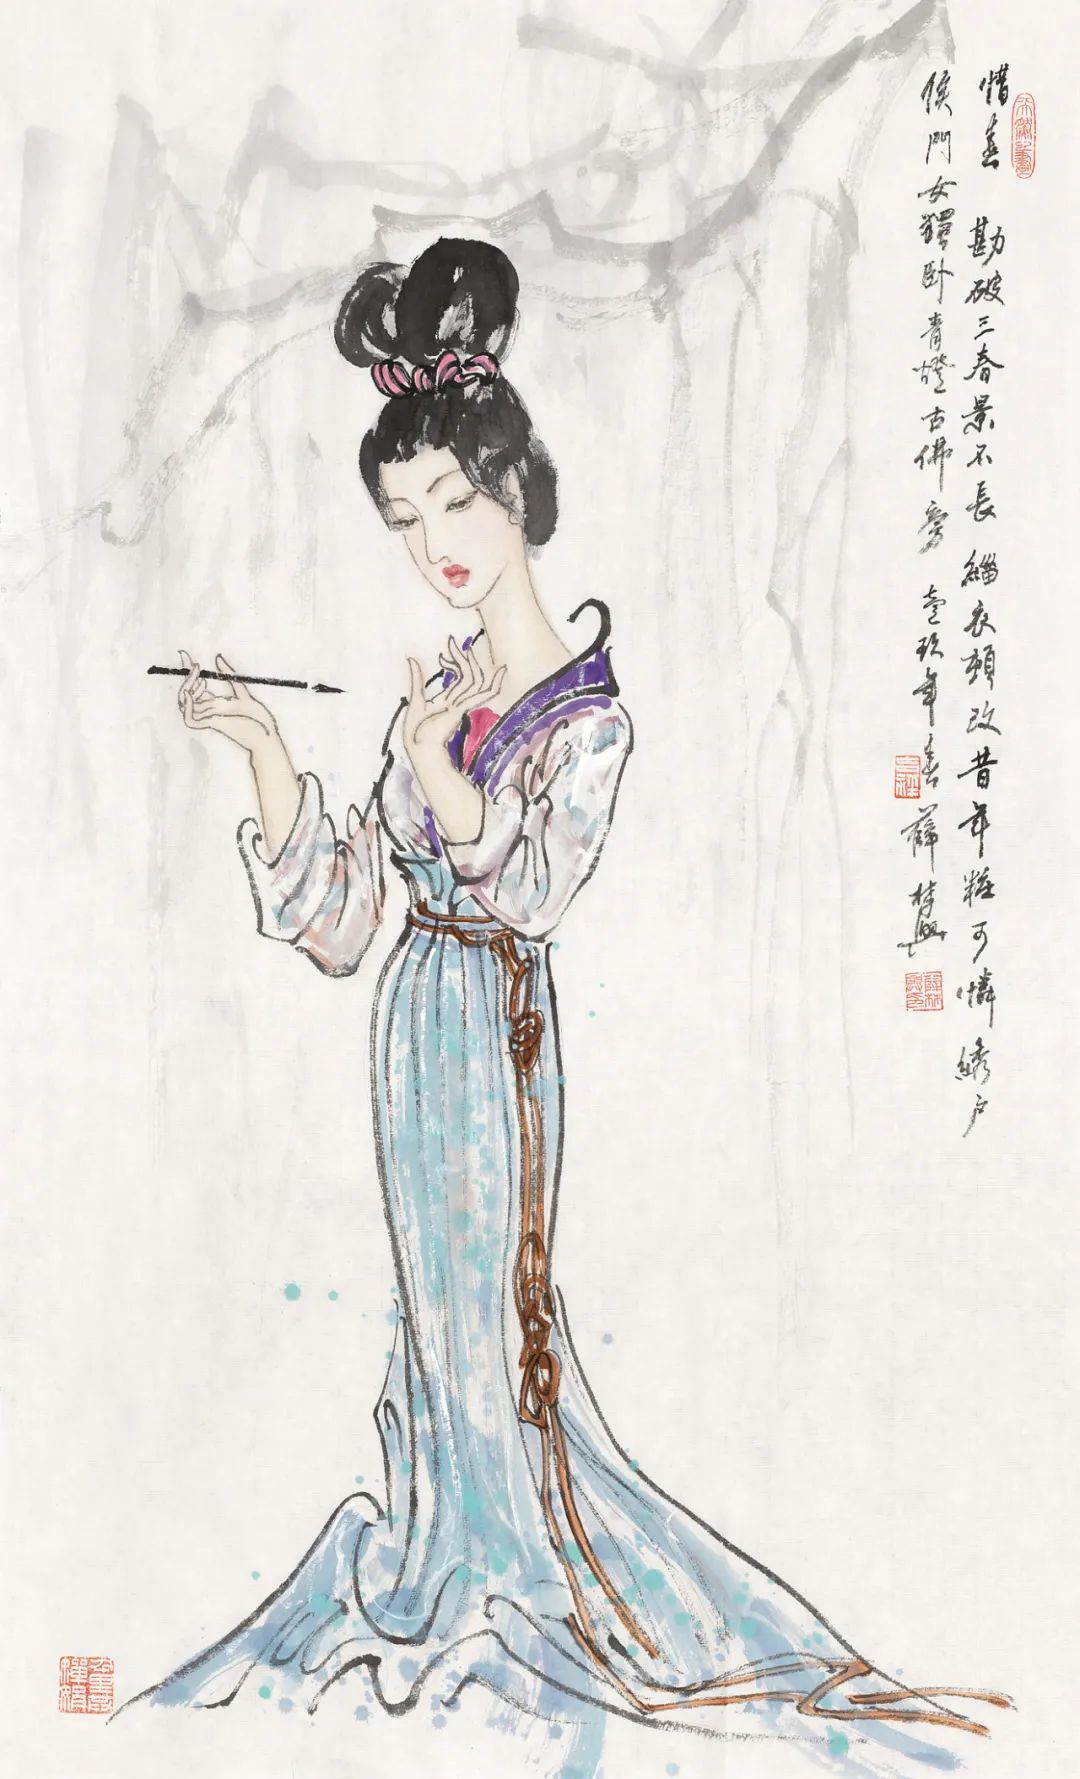 惜春 勘破三春景不長 緇衣頓改昔年粧 可憐綉户
侯門女 獨卧青燈古佛旁 壹玖年春 薛林興